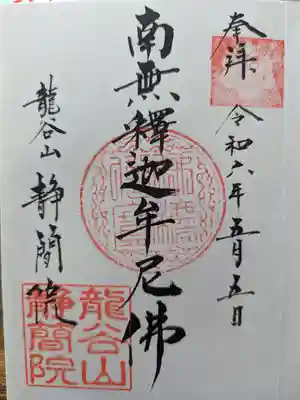 奉拝
令和六年五月五日
南無釋迦牟尼佛
龍谷山 静簡院
龍谷山
静簡院